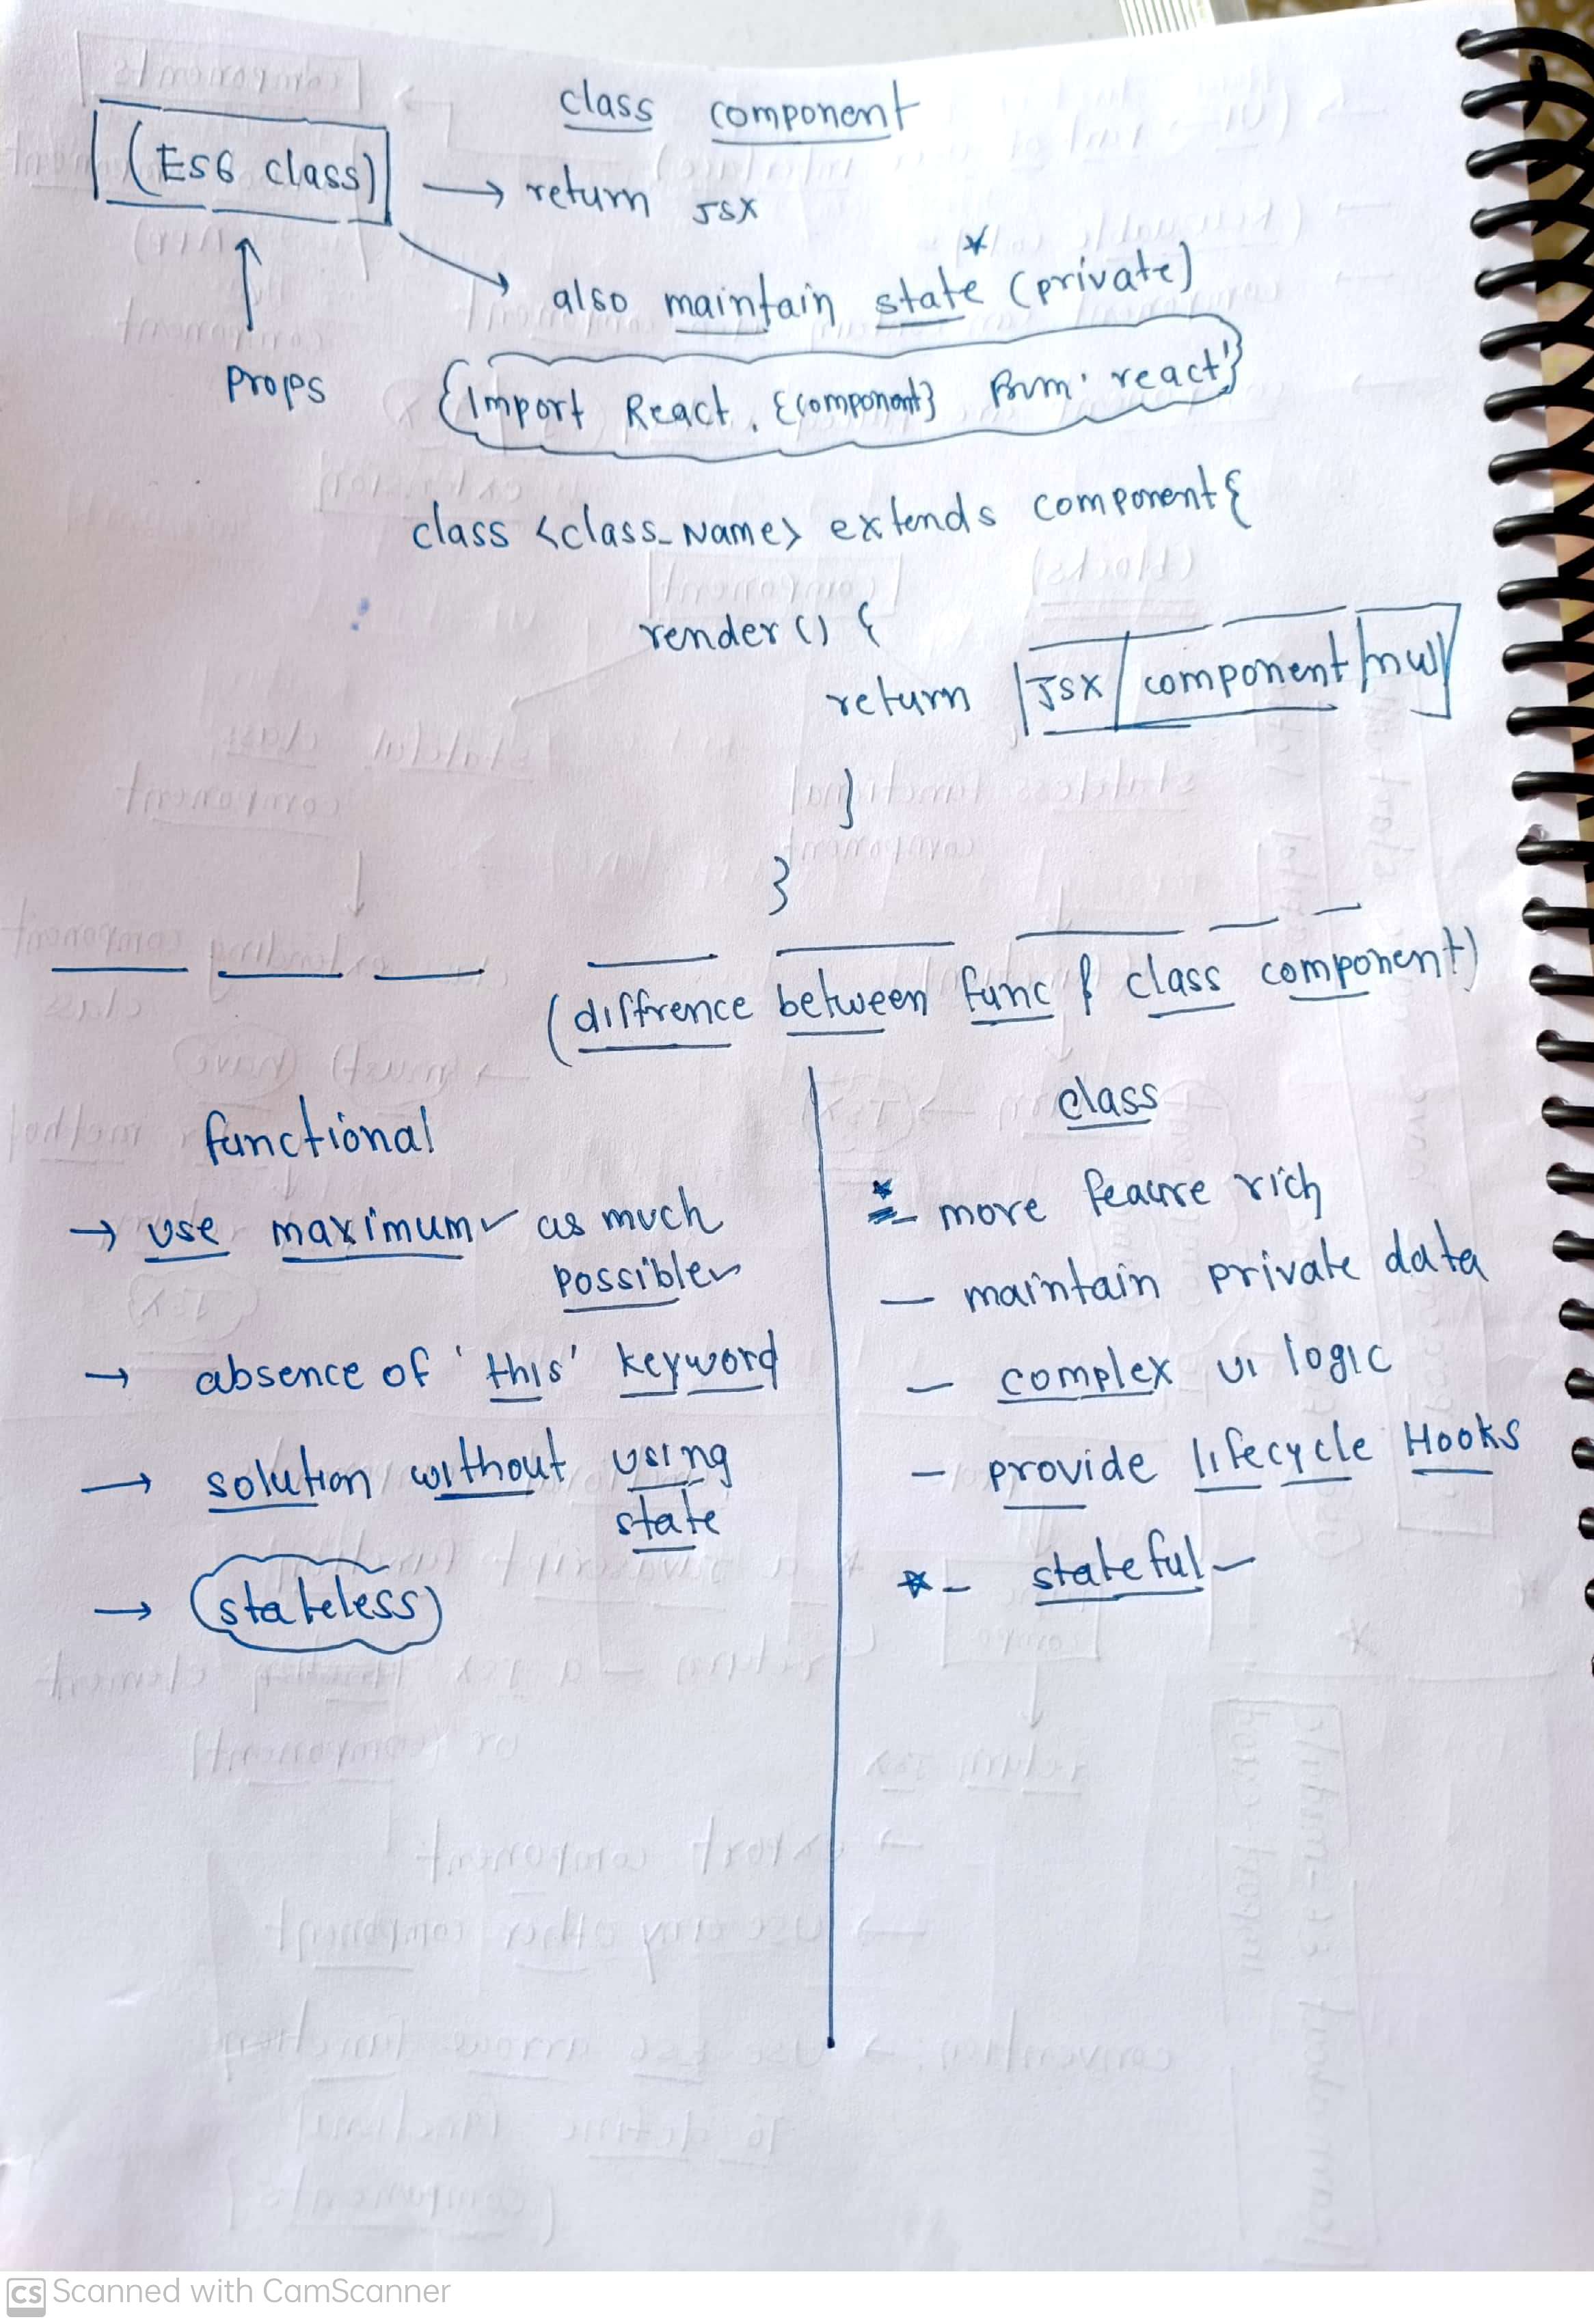 class component
(ES6 class) → return JSX
*
also maintain state (private)
Props
{Import React, {component} from 'react'}
class <class_Name> extends component{
render () {
return JSX / component / null
}
}
(diffrence between func & class component)
functional
→ use maximum as much
possible
→ absence of 'this' keyword
→ solution without using
state
→ (stateless)
class
* - more feaure rich
- maintain private data
- complex UI logic
- provide lifecycle Hooks
* - stateful -
CS Scanned with CamScanner